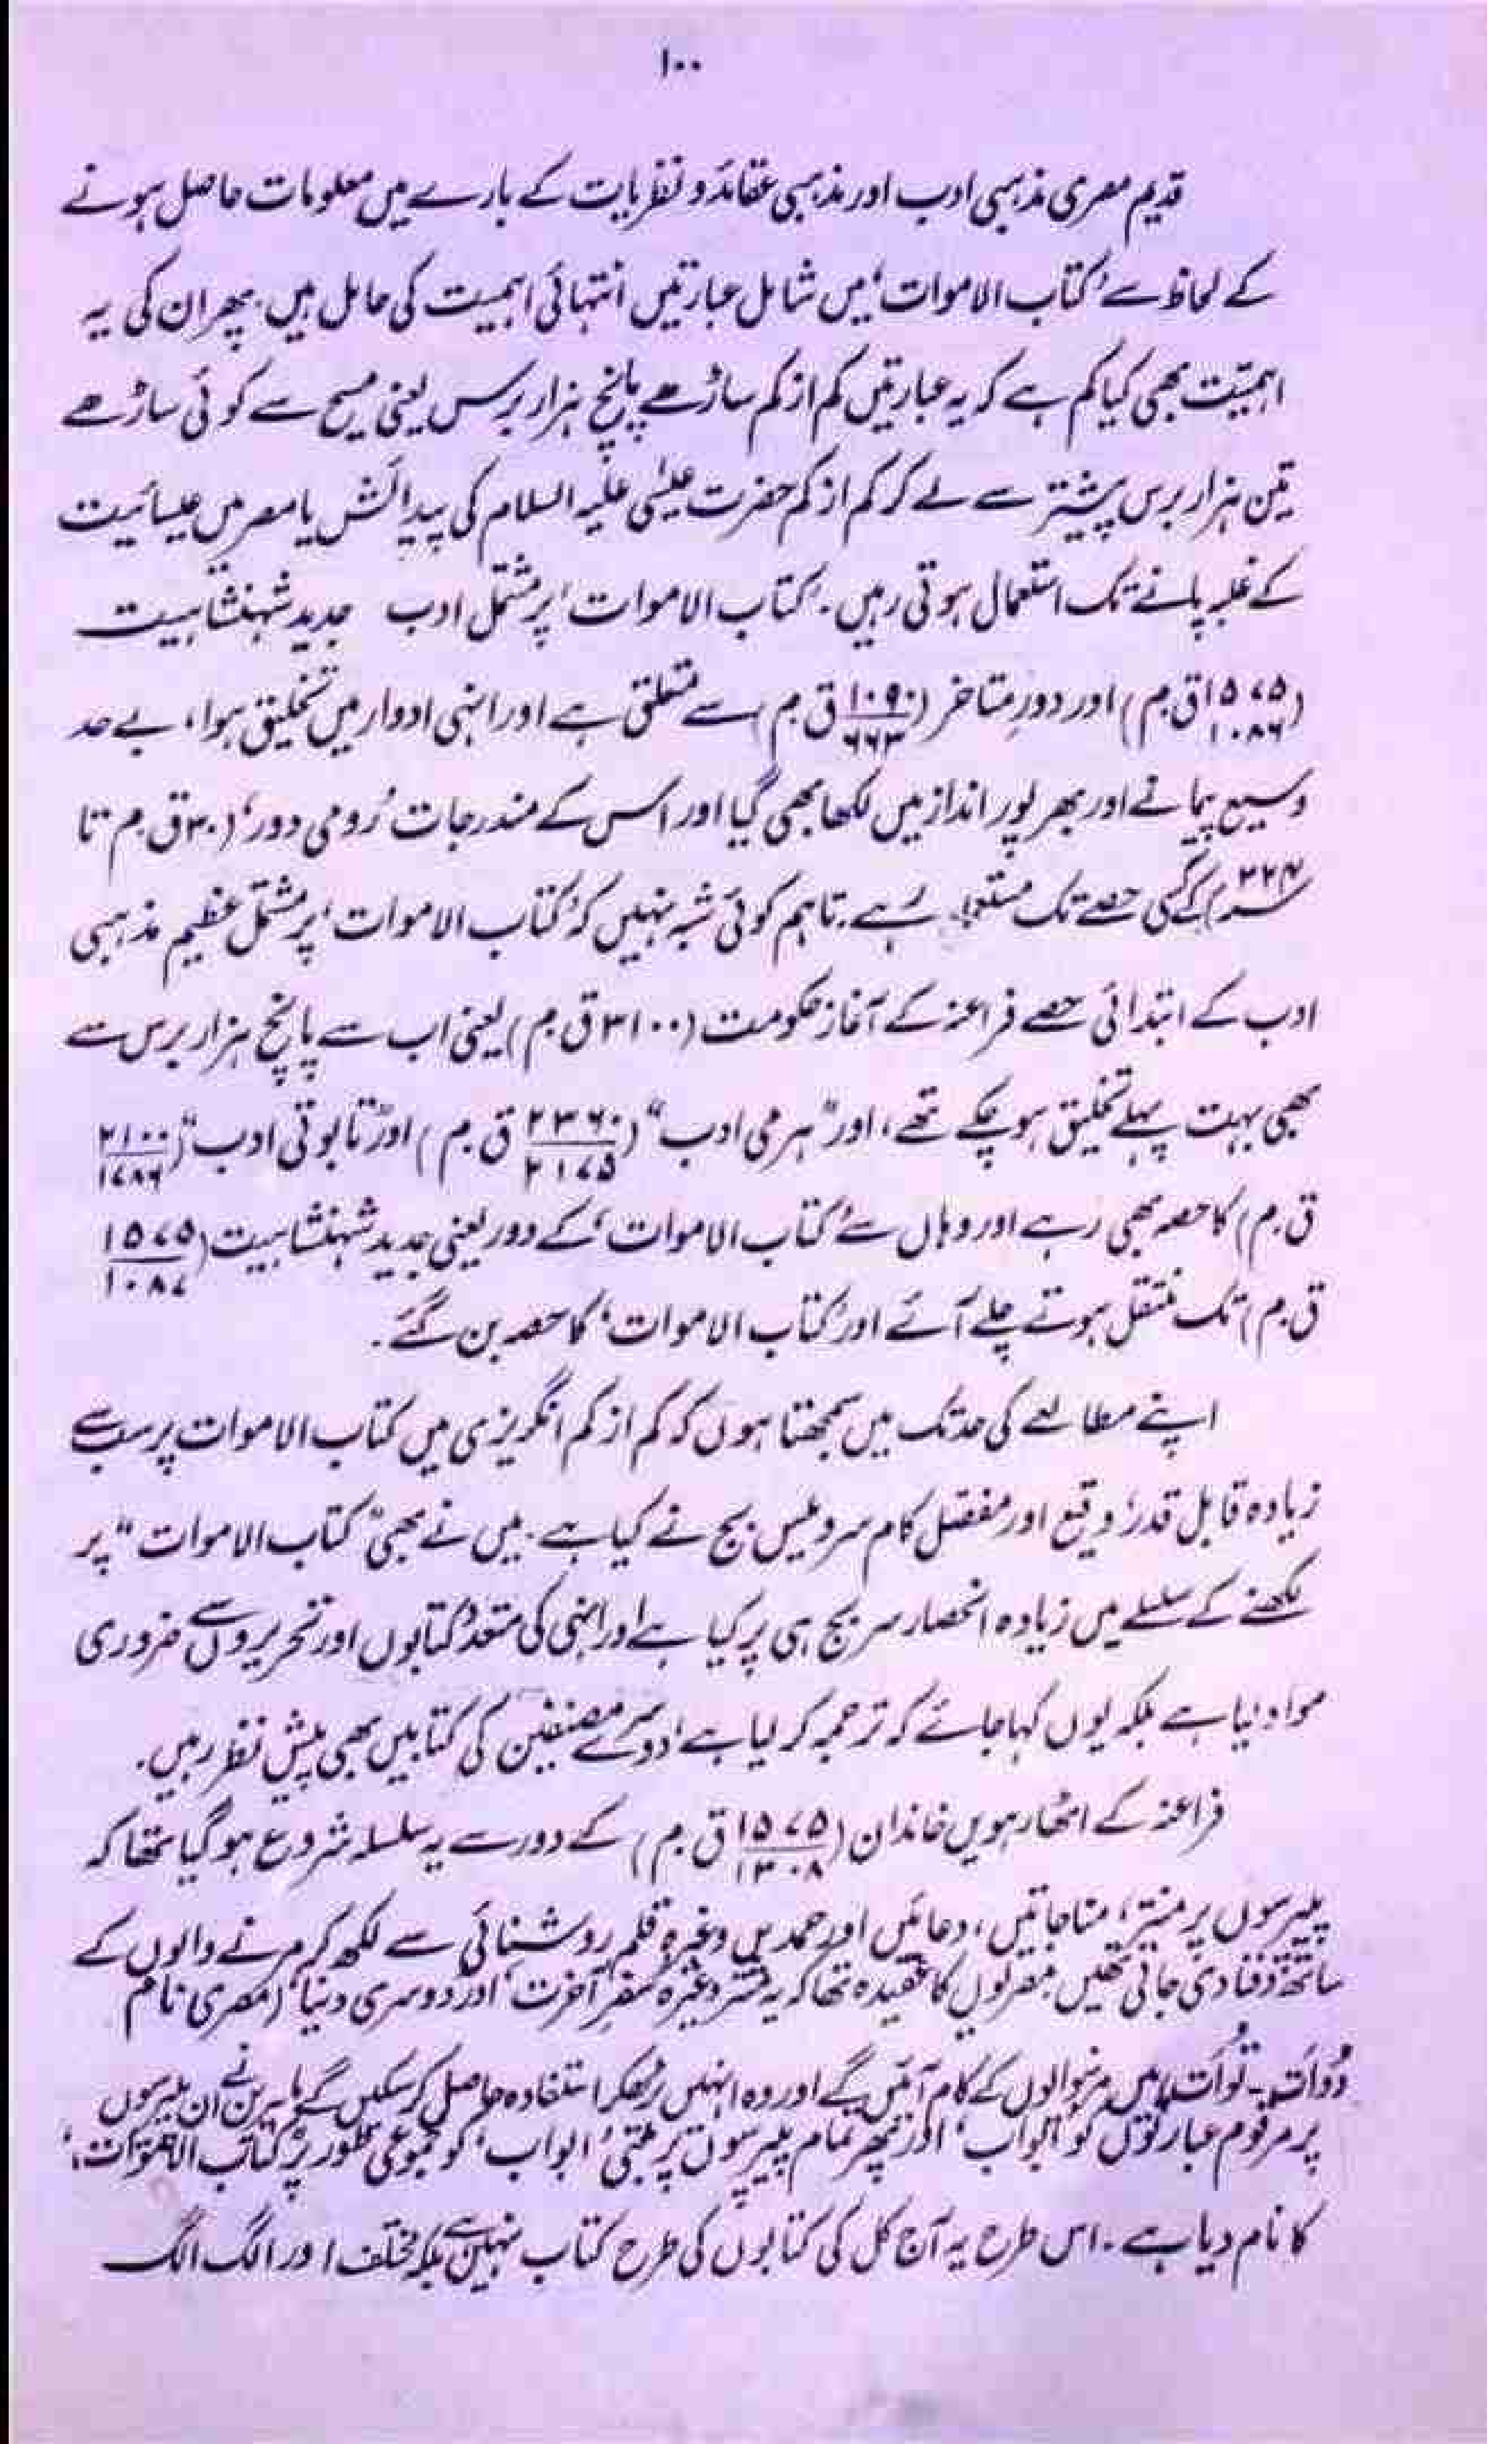 ۱۰۰
قدیم مصری مذہبی ادب اور مذہبی عقائد و نظریات کے بارے میں معلومات حاصل ہونے
کے لحاظ سے 'کتاب الاموات' میں شامل عبارتیں انتہائی اہمیت کی حامل ہیں۔ پھر ان کی یہ
اہمیّت بھی کیا کم ہے کہ یہ عبارتیں کم از کم ساڑھے پانچ ہزار برس یعنی مسیح سے کوئی ساڑھے
تین ہزار برس پیشتر سے لے کر کم از کم حضرت عیسٰی علیہ السلام کی پیدائش یا مصر میں عیسائیت
کے غلبہ پانے تک استعمال ہوتی رہیں۔ 'کتاب الاموات' پر مشتمل ادب جدید شہنشاہیت
(۱۵۷۵/۱۰۸۶ ق۔م) اور دورِ متاخر (۱۰۹۰/۶۶۳ ق۔م) سے متعلق ہے اور انہی ادوار میں تخلیق ہوا، بے حد
وسیع پیمانے اور بھرپور انداز میں لکھا بھی گیا اور اس کے مندرجات 'رُومی دور' (۳۰ ق۔م تا
کے کسی حصے تک رہے۔ تاہم کوئی شبہ نہیں کہ 'کتاب الاموات' پر مشتمل عظیم مذہبی
ادب کے ابتدائی حصے فراعنہ کے آغاز حکومت (۳۱۰۰ ق۔م) یعنی اب سے پانچ ہزار برس سے
بھی بہت پہلے تخلیق ہو چکے تھے، اور "ہرمی ادب" (۲۳۶۰/۲۱۷۵ ق۔م) اور "تابوتی ادب" (۲۱۰۰/۱۷۸۶
ق۔م) کا حصہ بھی رہے اور وہاں سے 'کتاب الاموات' کے دور یعنی جدید شہنشاہیت (۱۵۷۵/۱۰۸۷
ق۔م) تک منتقل ہوتے چلے آئے اور 'کتاب الاموات' کا حصہ بن گئے۔
اپنے مطالعے کی حد تک میں سمجھتا ہوں کہ کم از کم انگریزی میں کتاب الاموات پر سب سے
زیادہ قابل قدر، وقیع اور مفصّل کام سر ویلس بج نے کیا ہے۔ میں نے بھی "کتاب الاموات" پر
لکھنے کے سلسلے میں زیادہ انحصار سر بج ہی پر کیا ہے اور انہی کی متعدد کتابوں اور تحریروں سے ضروری
مواد لیا ہے بلکہ یوں کہا جائے کہ ترجمہ کر لیا ہے، دوسرے مصنفین کی کتابیں بھی پیش نظر رہیں۔
فراعنہ کے اٹھارہویں خاندان (۱۵۷۵/۱۳۰۸ ق۔م) کے دور سے یہ سلسلہ شروع ہو گیا تھا کہ
پیپرسوں پر منتر، مناجاتیں، دعائیں اور حمدیں وغیرہ قلم روشنائی سے لکھ کر مرنے والوں کے
ساتھ دفنا دی جاتی تھیں۔ مصریوں کا عقیدہ تھا کہ یہ منتر وغیرہ 'سفرِ آخرت' اور 'دوسری دنیا' (مصری نام
دُوات۔ تُوات) میں مرنیوالوں کے کام آئیں گے اور وہ انہیں پڑھکر استفادہ حاصل کر سکیں گے ماہرین نے ان پیپرسوں
پر مرقوم عبارتوں کو 'ابواب' اور پھر تمام پیپرسوں پر مبنی 'ابواب' کو مجموعی طور پر 'کتاب الاموات'،
کا نام دیا ہے۔ اس طرح یہ آج کل کی کتابوں کی طرح کتاب نہیں ہے بلکہ مختلف اور الگ الگ